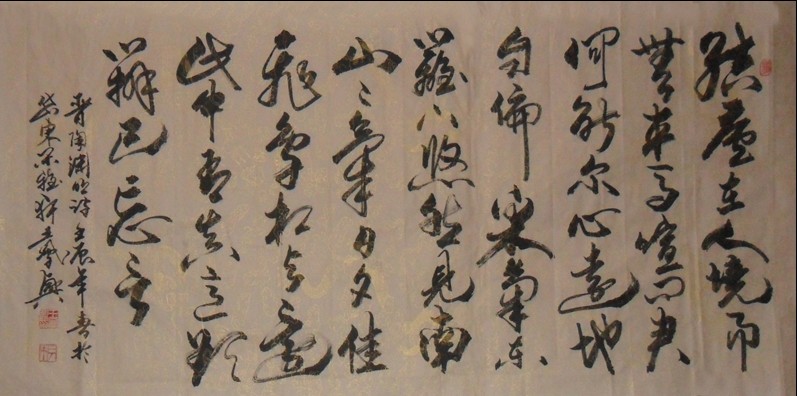 結廬在人境而
無車馬喧問君
何能尔心遠地
自偏采菊东
籬下悠然見南
山〻氣日夕佳
飛鳥相与還
此中有真意欲
辨已忘言
晋陶渊明诗壬辰年春於
岱東軒